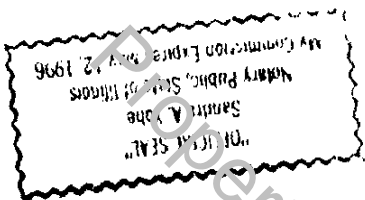 "OFFICIAL SEAL"
Sandra A. Yohe
Notary Public, State of Illinois
My Commission Expires May 12, 1996
Proper